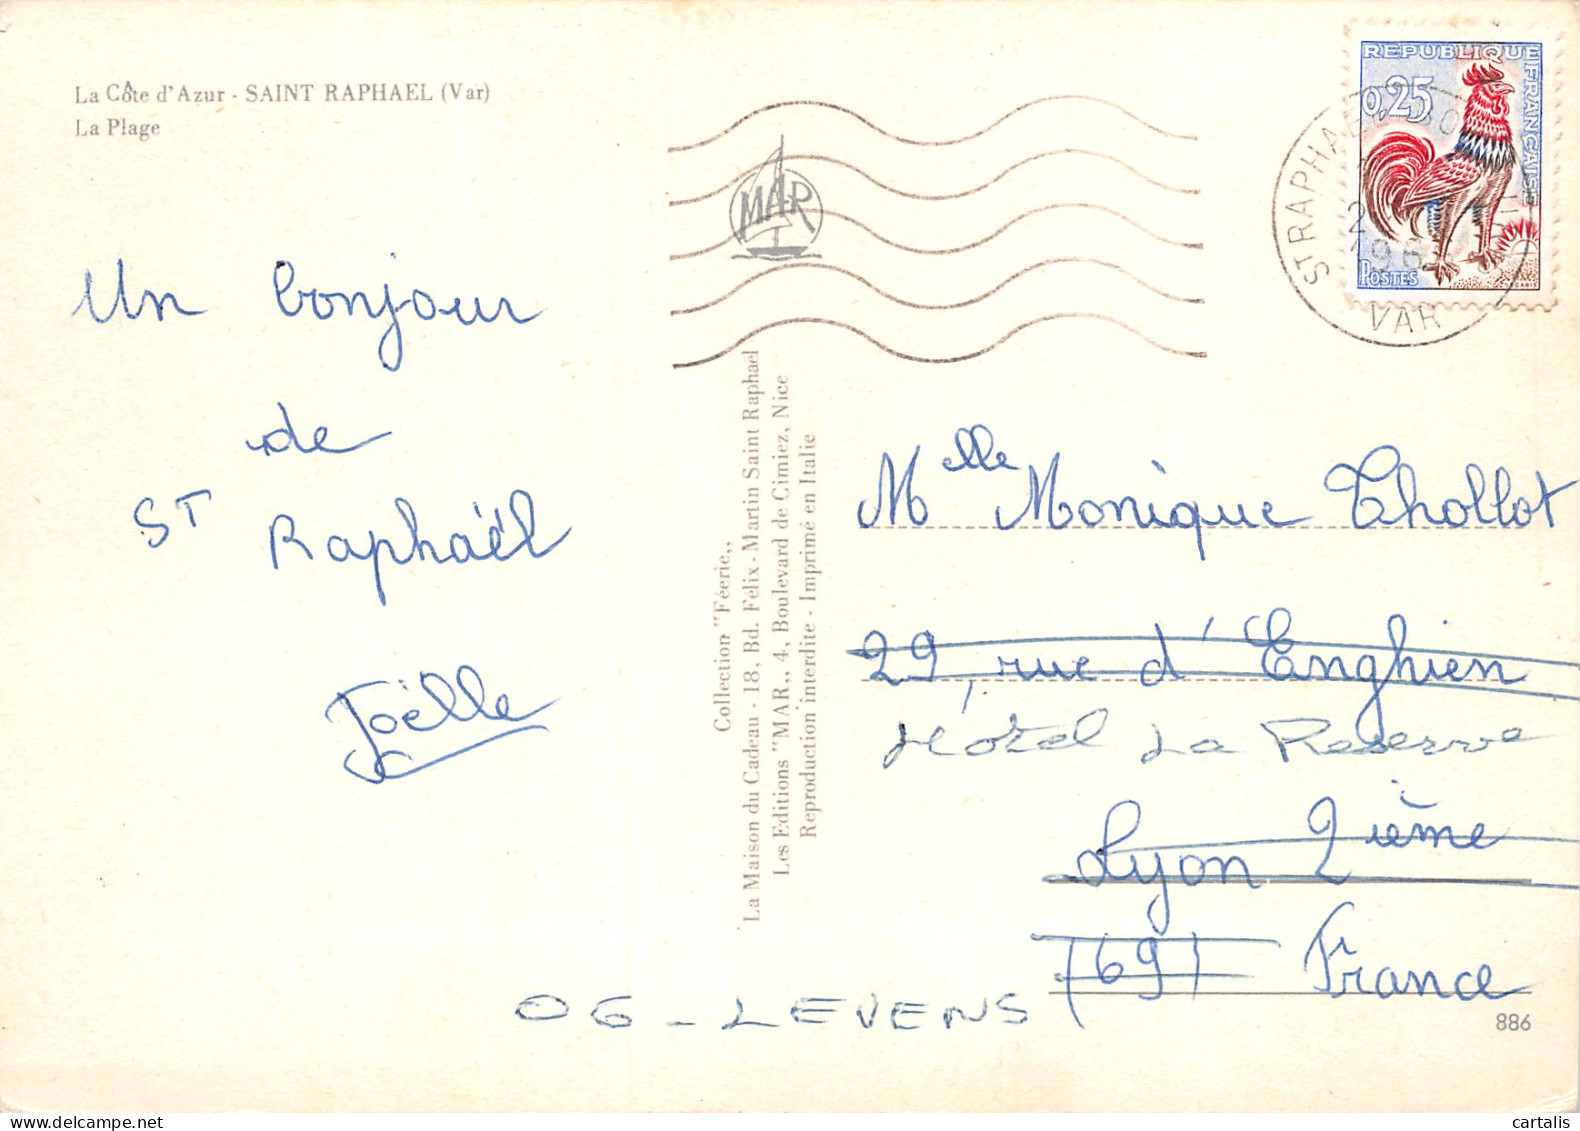 La Côte d'Azur - SAINT RAPHAEL (Var)
La Plage
Un bonjour
de
ST Raphaël
Joëlle
MAR
Collection "Féerie,,
La Maison du Cadeau - 18, Bd. Felix - Martin Saint Raphael
Les Editions "MAR,, 4, Boulevard de Cimiez, Nice
Reproduction interdite - Imprimé en Italie
REPUBLIQUE FRANÇAISE
0,25
POSTES
ST RAPHAEL
VAR
Melle Monique Thollot
29, rue d'Enghien
Hôtel La Reserve
Lyon 2ième
(69) France
06 - LEVENS
886
cartalis